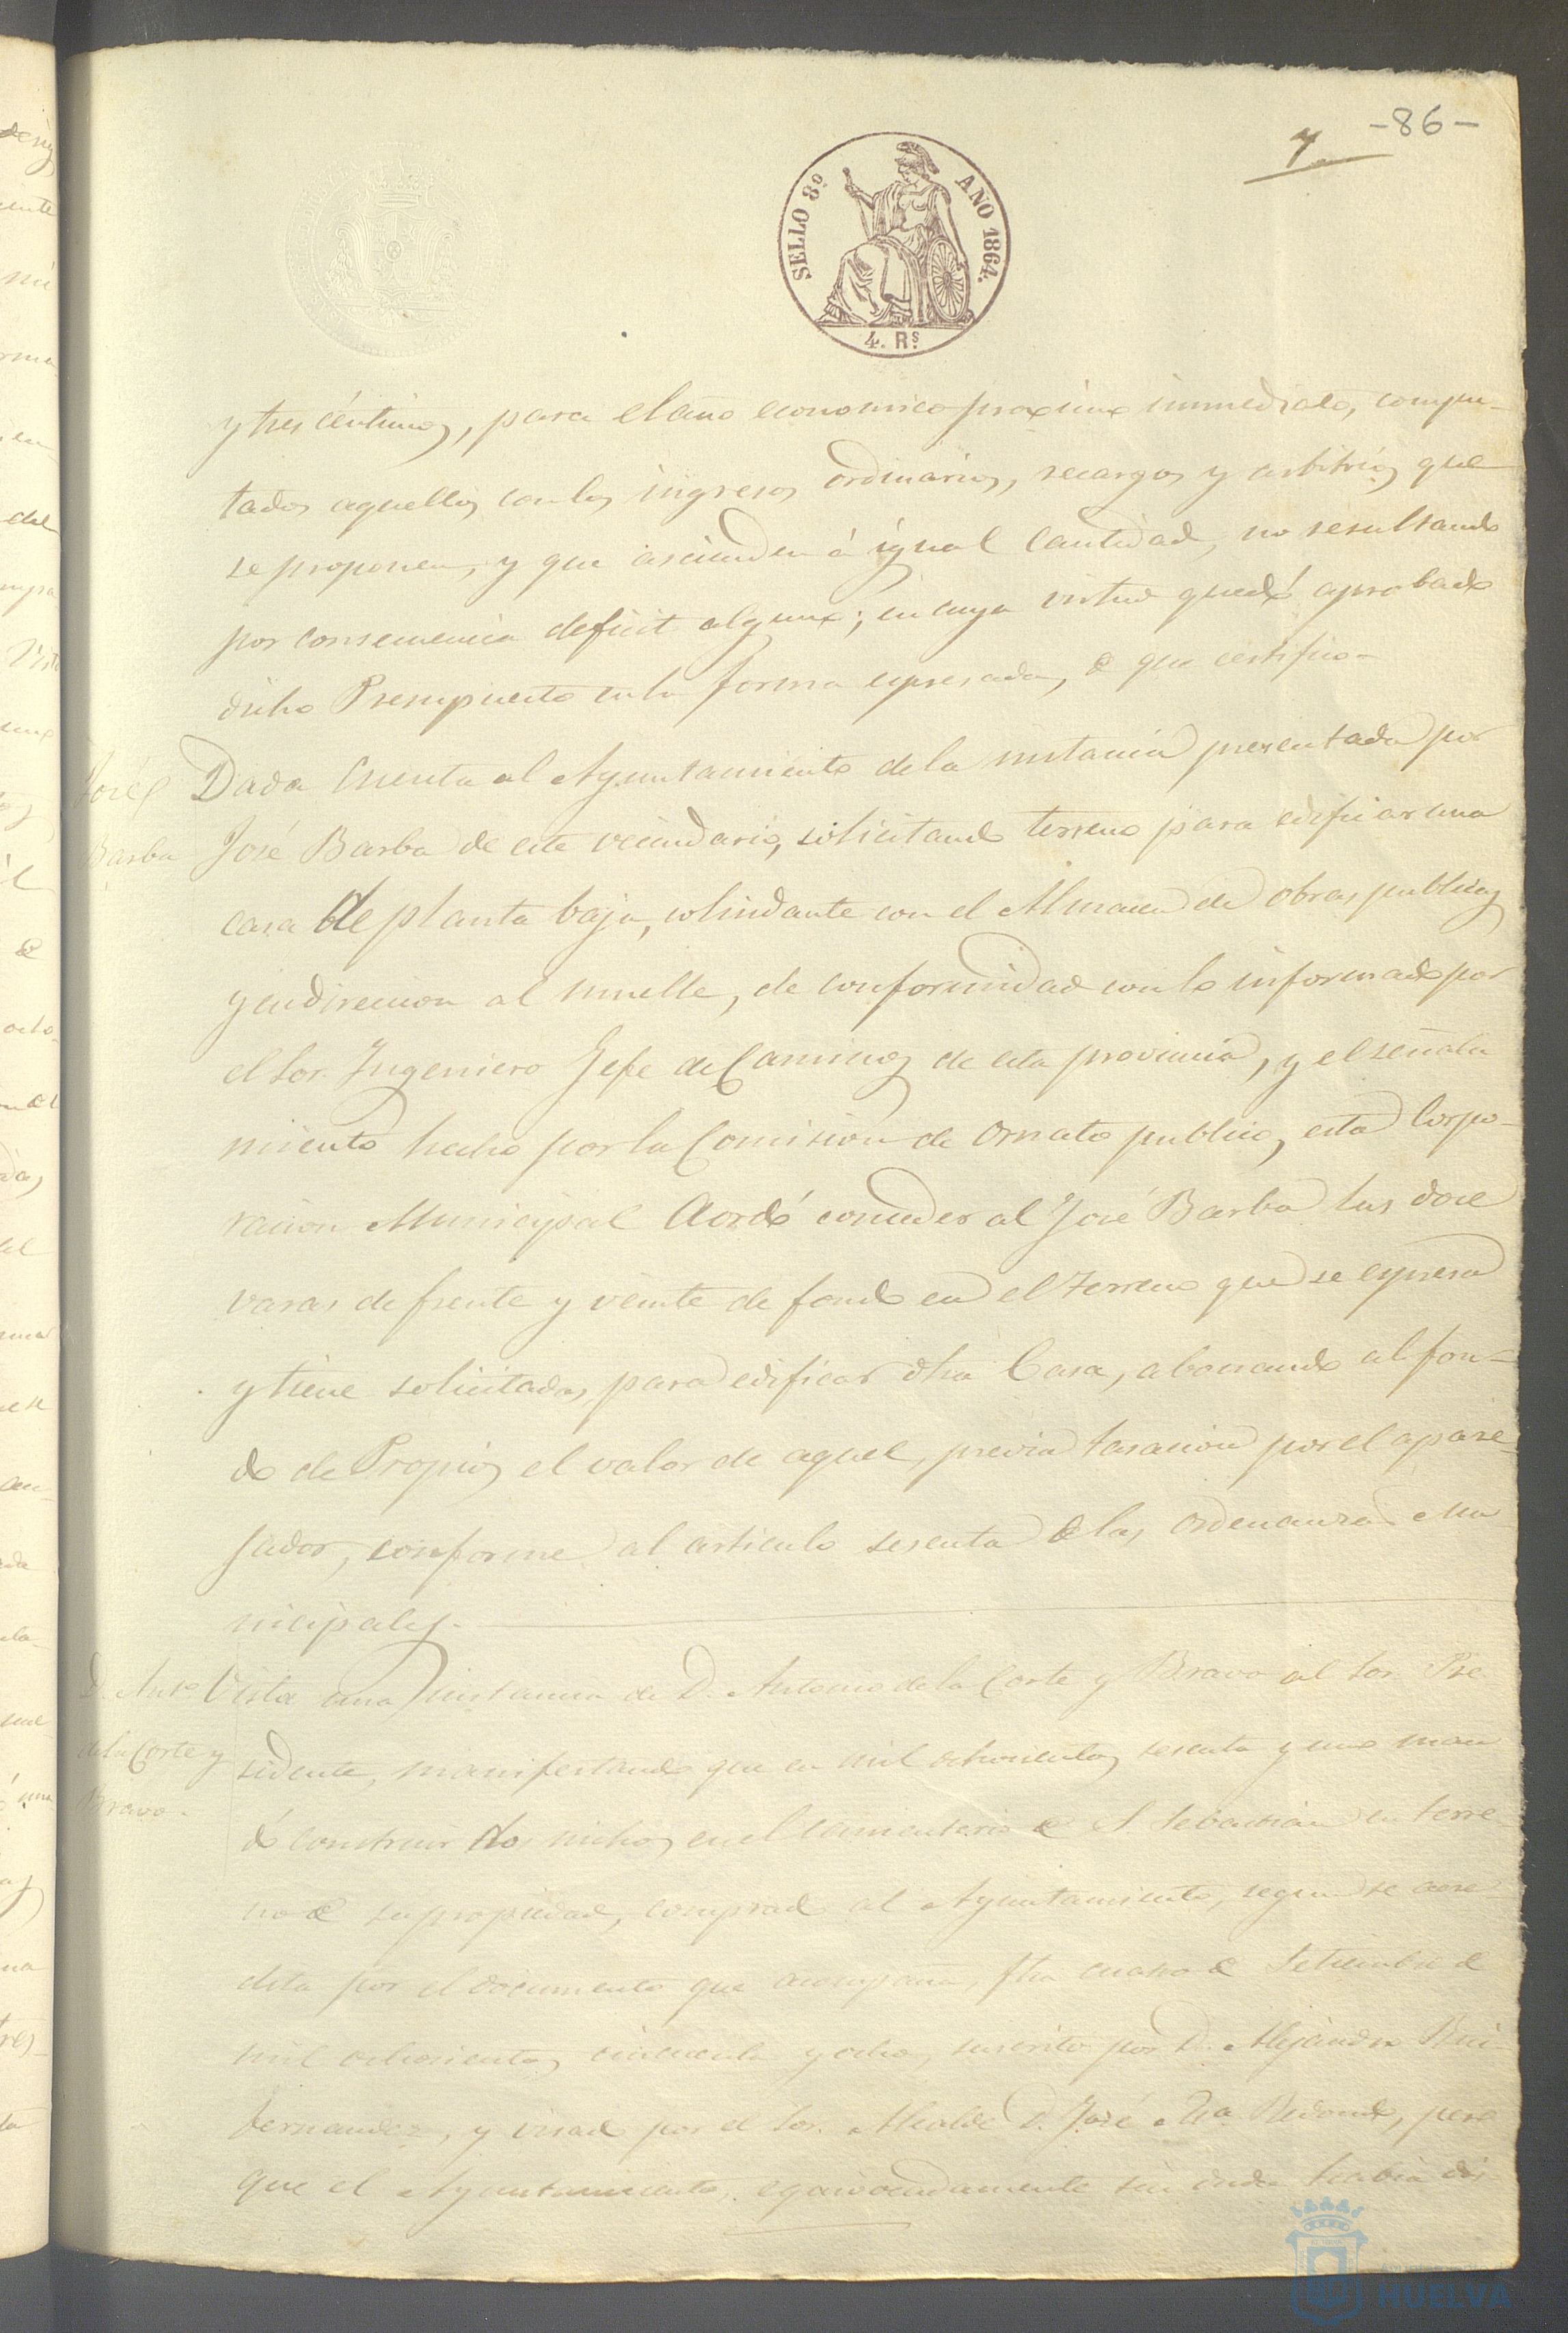 -86-
7
SELLO 8º AÑO 1864.
4. Rˢ
y tres céntimos, para el año economico proximo inmediato, compu-
tados aquellos con los ingresos ordinarios, recargos y arbitrios que
se proponen, y que ascienden á igual cantidad, no resultando
por consecuencia deficit alguno; en cuya virtud quedó aprobado
dicho Presupuesto en la forma espresada, de que certifico-
José
Barba
Dada Cuenta al Ayuntamiento de la instancia presentada por
José Barba de este vecindario, solicitando terreno para edificar una
casa de planta baja, colindante con el Almacen de obras publicas
y en direccion al muelle, de conformidad con lo informado por
el Sor. Ingeniero Jefe de Caminos de esta provincia, y el señala
miento hecho por la Comision de Ornato publico, esta Corpo-
racion Municipal Acordó conceder al José Barba las doce
varas de frente y veinte de fondo en el terreno que se espresa
y tiene solicitadas, para edificar dha Casa, abonando al fon-
do de Propios el valor de aquel, previa tasacion por el apare-
jador, conforme al articulo sesenta de las ordenanzas Mu
nicipales.-
D. Antº
de la Corte y
Bravo.
Vista una instancia de D. Antonio de la Corte y Bravo al Sor. Pre
sidente, manifestando que en mil ochocientos sesenta y uno man
dó construir dos nichos en el cementerio de S. Sebastian en terre
no de su propiedad, comprado al Ayuntamiento, segun se acre
dita por el documento que acompaña, fha cuatro de Setiembre de
mil ochocientos cincuenta y ocho, suscrito por D. Alejandro
Fernandez, y visado por el Sor. Alcalde D. José Mª Redondo, pero
que el Ayuntamiento, equivocadamente sin duda habia dis-
HUELVA